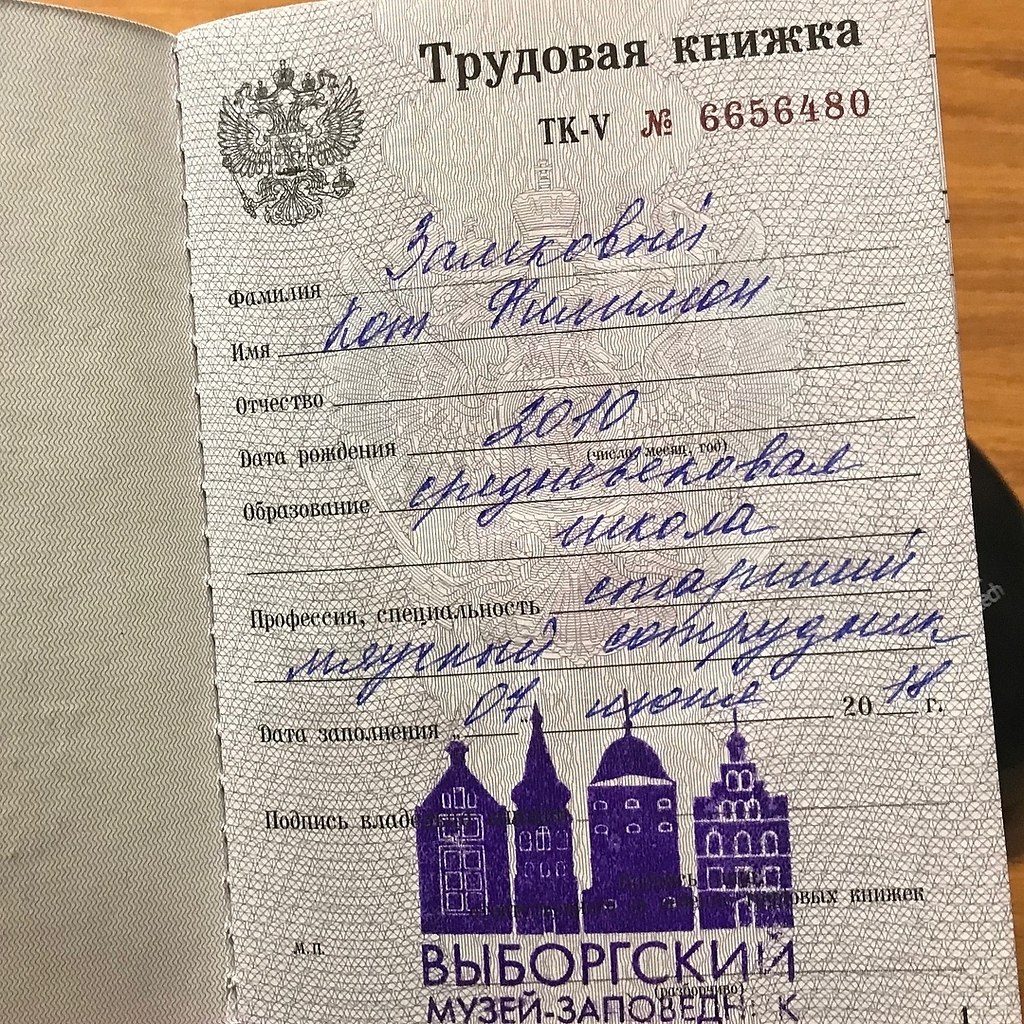 Трудовая книжка
ТК-V № 6656480
Фамилия Замковый
Имя Кот Филимон
Отчество
Дата рождения 2010
(число, месяц, год)
Образование средневековая
школа
Профессия, специальность старший
мяучный сотрудник
Дата заполнения „07“ июня 2018 г.
Подпись владельца книжки
трудовых книжек
М.П.
ВЫБОРГСКИЙ
(разборчиво)
МУЗЕЙ-ЗАПОВЕДНИК
1